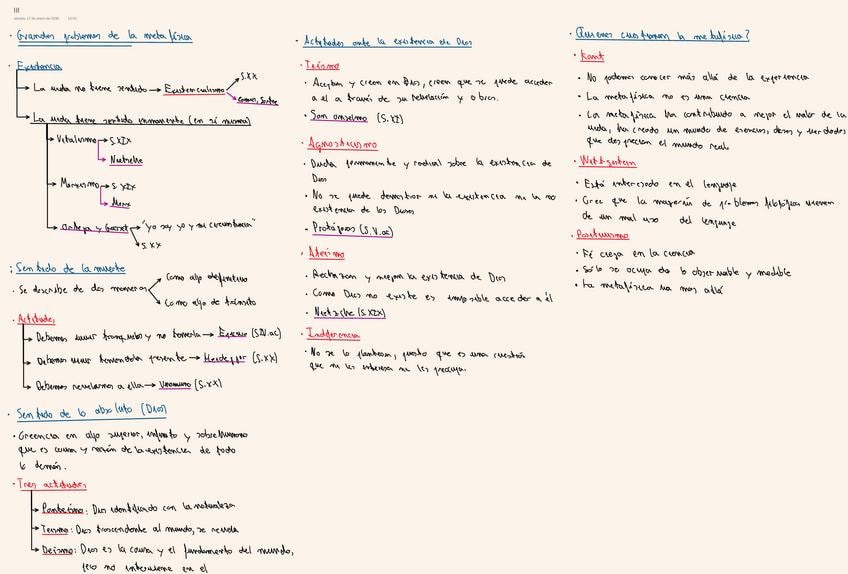 III
sábado, 17 de enero de 2026
Grandes problemas de la metafísica
Existencia
La vida no tiene sentido → Existencialismo
S.XX
Camus, Sartre
La vida tiene sentido inmanente (en sí misma)
Vitalismo → S.XIX
Nietzsche
Marxismo → S.XIX
Marx
Ortega y Gasset → "yo soy yo y mi circunstancia"
S.XX
Sentido de la muerte
Se describe de dos maneras
Como algo definitivo
Como algo de tránsito
Actitudes
Debemos vivir tranquilos y no temerla → Epicuro (S.IV.ac)
Debemos vivir teniendola presente → Heidegger (S.XX)
Debemos revelarnos a ella → Unamuno (S.XX)
Sentido de lo absoluto (Dios)
Creencia en algo superior, infinito y sobrehumano
que es causa y razón de la existencia de todo
lo demás.
Tres actitudes
Panteísmo: Dios identificado con la naturaleza
Teísmo: Dios trascendente al mundo, se revela
Deísmo: Dios es la causa y el fundamento del mundo,
pero no interviene en el
Actitudes ante la existencia de Dios
Teísmo
Aceptan y creen en Dios, creen que se puede acceder
a el a través de su revelación y obras.
San Anselmo (S.XI)
Agnosticismo
Duda permanente y radical sobre la existencia de
Dios
No se puede demostrar ni la existencia ni la no
existencia de los Dioses
Protágoras (S.V.ac)
Ateísmo
Rechazan y niegan la existencia de Dios
Como Dios no existe es imposible acceder a él
Nietzsche (S.XIX)
Indiferencia
No se lo plantean, puesto que es una cuestión
que ni les interesa ni les preocupa.
Quienes cuestionan la metafísica?
Kant
No podemos conocer más allá de la experiencia
La metafísica no es una ciencia
La metafísica ha contribuido a mejor el valor de la
vida, ha creado un mundo de esencias, dioses y verdades
que desprecian el mundo real.
Wittgstein
Está interesado en el lenguaje
Cree que la mayoría de problemas filosóficos vienen
de un mal uso del lenguaje
Positivismo
Fé ciega en la ciencia
Sólo se ocupa de lo observable y medible
La metafísica va mas allá